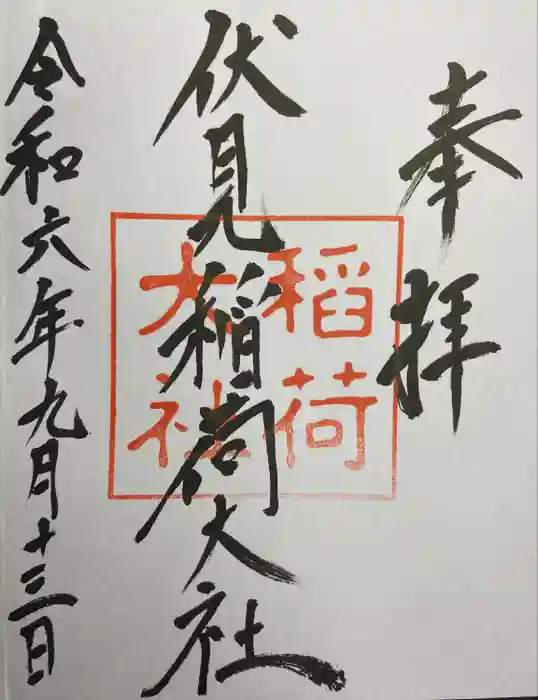 奉拝
伏見稲荷大社
稲荷
大社
令和六年九月十三日